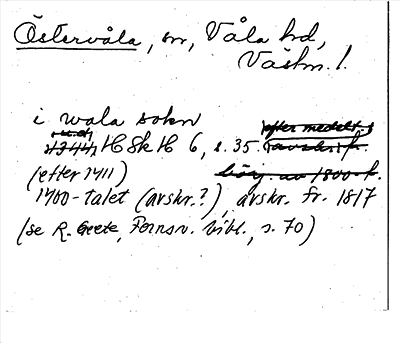 Östervåla, sn, Våla hd,
Västm. l.
i wala sokn
u.d. efter medelt.s
(1344) HSkH 6, s. 35. avskrift fr.
(efter 1411) börj. av 1800-t.
1400-talet (avskr.?), avskr. fr. 1817
(se R. Geete, Fornsv. bibl., s. 70)